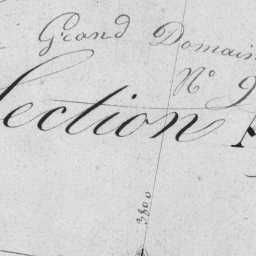 Grand Domain
N° 9
Section
3800